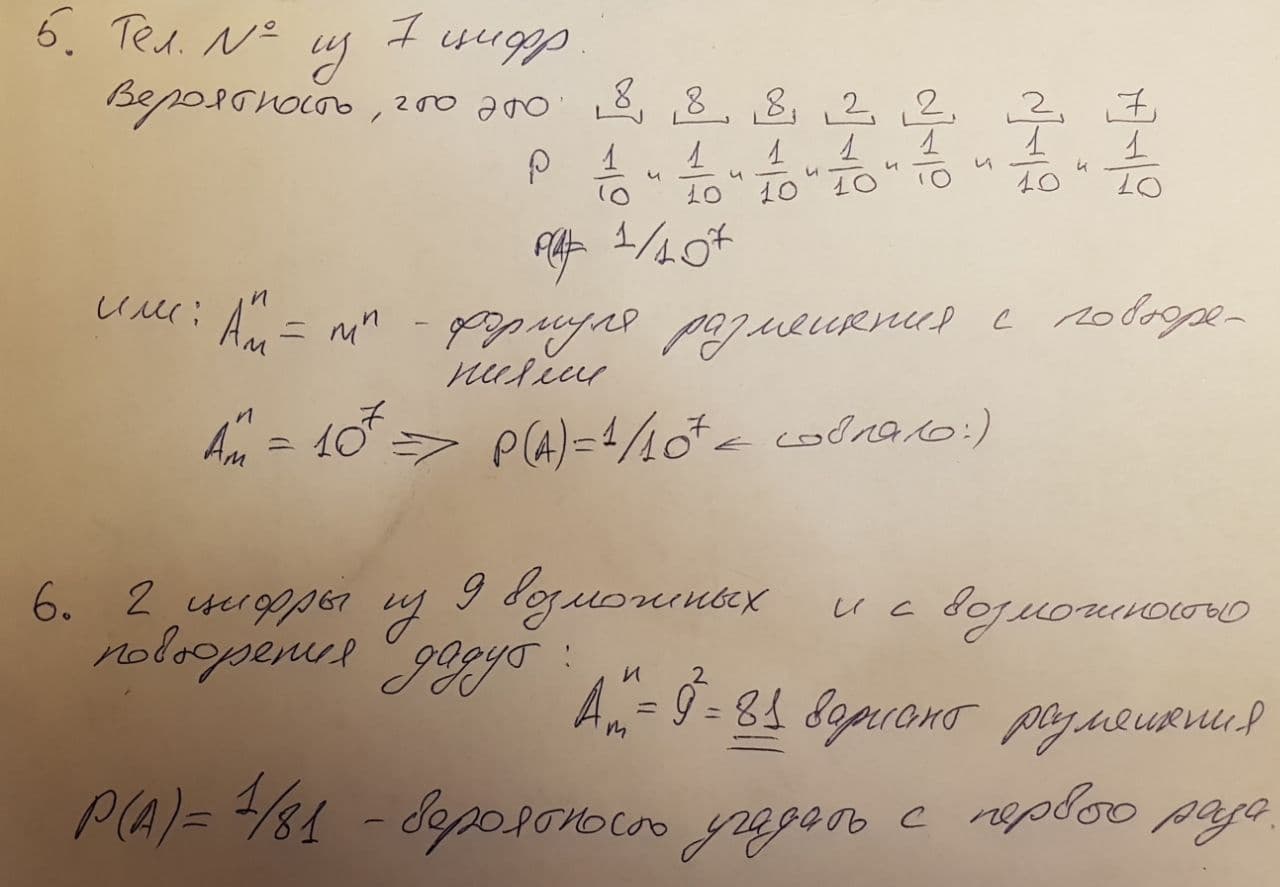 5. Тел. № из 7 цифр.
Вероятность, что это: 8 8 8 2 2 2 7
P 1/10 и 1/10 и 1/10 и 1/10 и 1/10 и 1/10 и 1/10
P(A)= 1/10⁷
или: Aₘⁿ = mⁿ - формула размещения с повторе-
ниями
Aₘⁿ = 10⁷ => P(A)=1/10⁷ ← совпало:)
6. 2 цифры из 9 возможных и с возможностью
повторения дадут:
Aₘⁿ = 9² = 81 вариант размещения
P(A)= 1/81 - вероятность угадать с первого раза.